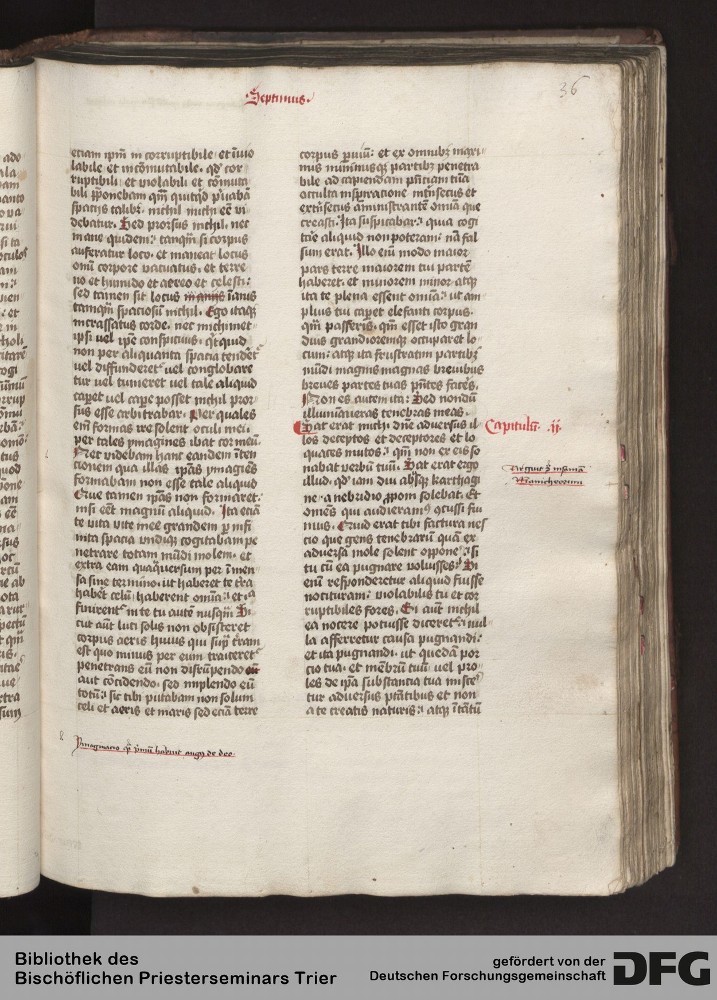 Septimus
36
etiam ipm̄ in corruptibile · et īuio
labile et in cōmutabile · qd' cor
ruptibili · et violabili et cōmuta
bili p̄ponebam qm̄ quitqd p'uabā
spatiis talibꝫ · nichil michi eē vi
debatur · Sed prorsus nichil · nec
inane quidem · tanqm̄ si corpus
auferatur loco · et maneat locus
omī corpore vacuatus · et terre
no et humido et aereo et celesti ·
sed tamen sit locus inanis īanis
tamqm̄ spaciosū nichil · Ego itaqꝫ
incrassatus corde · nec michimet
ipsi vel ipe conspicuus · qitquid
non per aliquanta spacia tenderet
vel diffunderet' vel conglobare
tur vel tumeret vel tale aliquid
caperet vel cape posset nichil pror
sus esse arbitrabar · Per quales
eni formas ire solent oculi mei ·
per tales ymagines ibat cor meū ·
Nec videbam hanc eandem īten
cionem qua illas ip̄as ymagīes
formabam non esse tale aliquid
Que tamen ip̄as non formaret ·
nisi eēt magnū aliquid · Ita eciā
te vita vite mee grandem p infi
nita spacia undiqꝫ cogitabam pe
netrare totam mūdi molem · et
extra eam quaqūersum per īmen
sa sine termino · ut haberet te t'ra
haber̄t celū · haberent omīa · et
finirent' in te tu autē nusqm̄ · Si
cut aut luci solis non obsisteret
corpus aeris huius qui sup t'ram
est quo minus per eum traiceret'
penetrans eū non disrūpendo
aut cōcidendo · sed implendo eū
totū · sic tibi putabam non solum
celi et aeris et maris sed eciā terre
ymaginacio quā primū habuit aug9 de deo
corpus puiū · et ex omnibꝫ maxi
mis minimisqꝫ partibꝫ penetra
bile ad capiendam p̄nciam tuā
occulta inspiratione intrīsecus et
extrīsecus aministrantē omīa que
creasti · Ita suspicabar · quia cogi
tare aliquid non poteram · nā fal
sum erat · Illo enī modo maior
pars terre maiorem tui partē
haberet · et minorem minor atqꝫ
ita te plena essent omīa · ut am
plius tui caperet elefanti corpus ·
qm̄ passeris · qm̄ esset isto gran
dius grandioremqꝫ occuparet lo
cum · atqꝫ ita frustratim partibꝫ
mūdi magnis magnas brevibus
breues partes tuas p̄ntes faceres ·
Non es autem ita · Sed nondū
illuminaueras tenebras meas ·
Sat erat michi dn̄e aduersus il
los deceptos et deceptores et lo
quaces mutos · qm̄ non ex eis so
nabat verbū tuū · Sat erat ergo
illud · qd' iam diu absqꝫ karthagi
ne · a nebridio p̄poni solebat · Et
omēs qui audieramꝰ ocussi fui
mus · Quid erat tibi factura nes
cio que gens tenebrarū quā ex
aduersa mole solent oppōne · si
tu cū ea pugnare voluisses · Si
enī responderetur aliquid fuisse
nociturum · violabilis tu et cor
ruptibiles fores · Si aut nichil
ea nocere potuisse diceret' · nul
la afferretur causa pugnandi ·
et ita pugnandi · ut quedā por
cio tua · et mēbrū tuū vel pro
les de ip̄a substantia tua misce
tur aduersis p̄tatibus et non
a te creatis naturis · atqꝫ ītātū
Capitulū · ij ·
Arguit
Manicheorum
Bibliothek des
Bischöflichen Priesterseminars Trier
gefördert von der
Deutschen Forschungsgemeinschaft
DFG